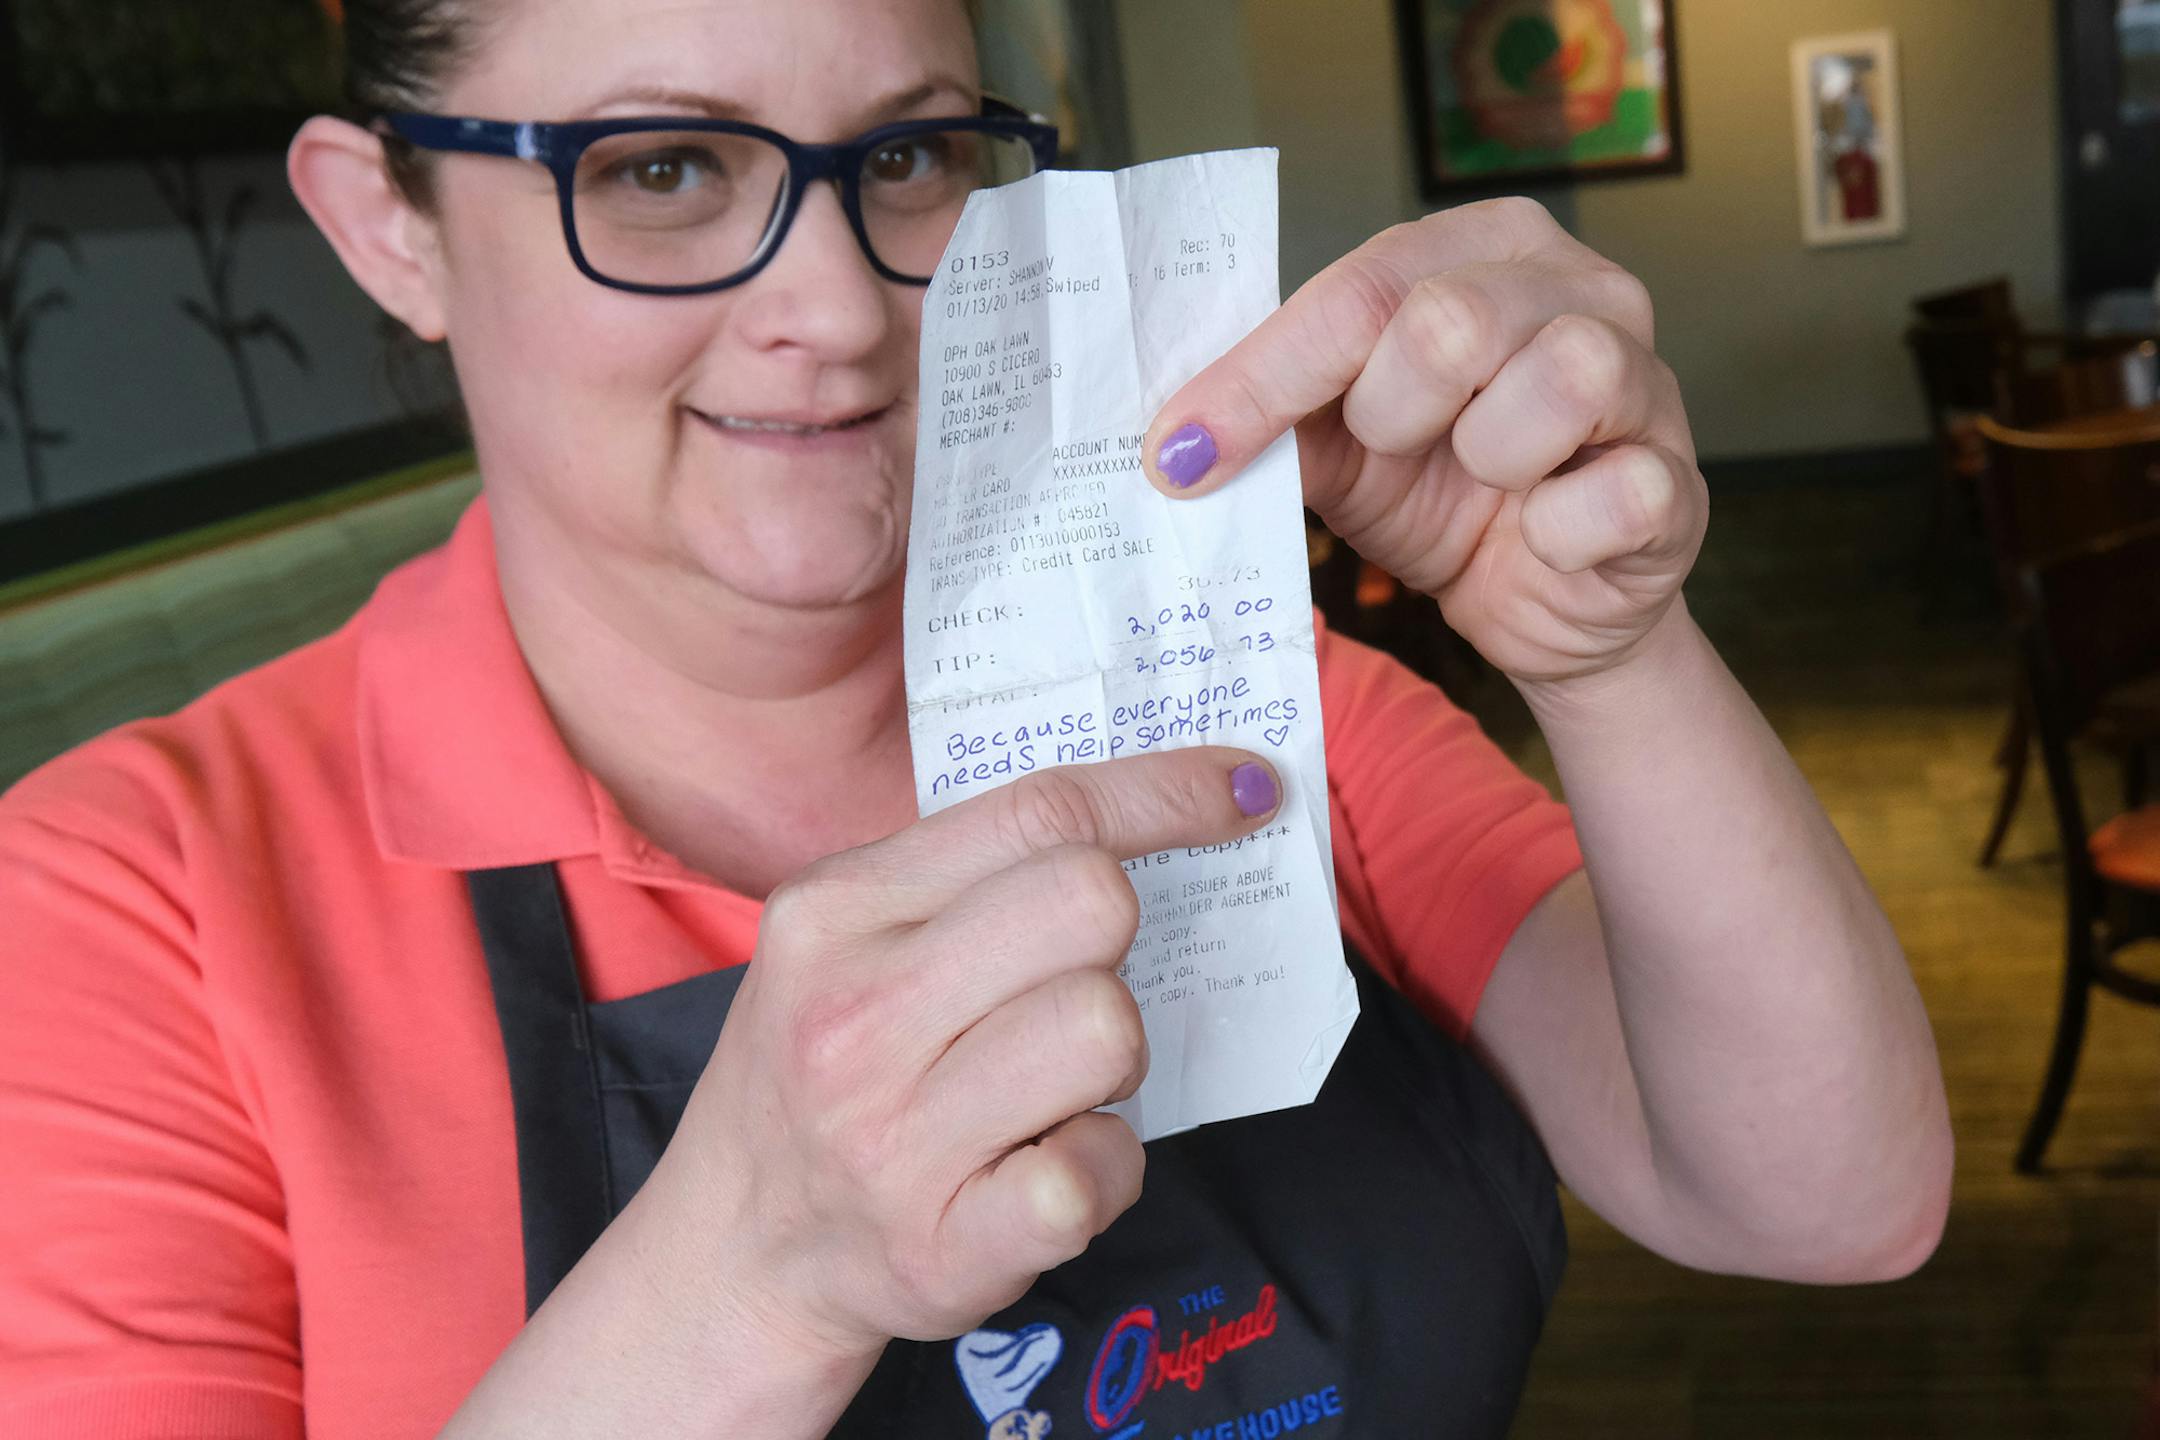 0153 Rec: 70
Server: SHANNON V T: 16 Term: 3
01/13/20 14:58, Swiped
OPH OAK LAWN
10900 S CICERO
OAK LAWN, IL 60453
(708)346-9800
MERCHANT #:
TYPE ACCOUNT NUM
MASTER CARD XXXXXXXXXXX
TRANSACTION APPROVED
AUTHORIZATION #: 045821
Reference: 0113010000153
TRANS TYPE: Credit Card SALE
CHECK: 36.73
TIP: 2,020.00
TOTAL: 2,056.73
Because everyone
needs help sometimes
♡
Copy***
CARD ISSUER ABOVE
CARDHOLDER AGREEMENT
copy.
and return
Thank you.
copy. Thank you!
THE
Original
AKEHOUSE